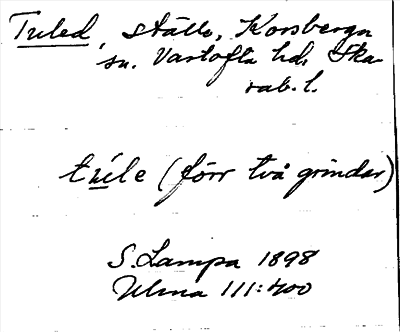 Tuled, ställe, Korsberga
sn. Vartofta hd, Ska-
rab. l.
tu̲le (förr två grindar)
S. Lampa 1898
Ulma 111:400